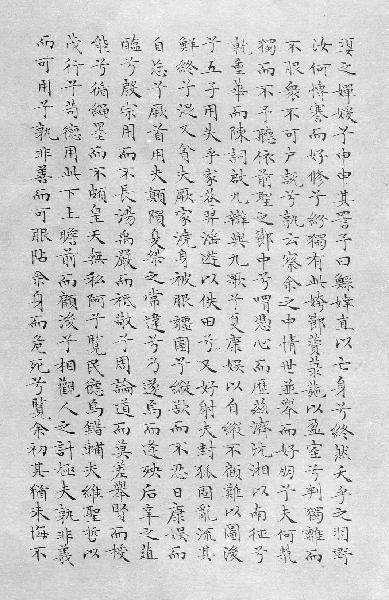 嬃之嬋媛兮申申其詈予曰鯀婞直以亡身兮終然夭乎之羽野
汝何博謇而好修兮紛獨有此姱節薋菉葹以盈室兮判獨離而
不服衆不可户說兮孰云察余之中情世並舉而好朋兮夫何煢
獨而不予聽依前聖之節中兮喟憑心而歷茲濟沅湘以南征兮
就重華而陳詞啟九辯與九歌兮夏康娛以自縱不顧難以圖後
兮五子用失乎家巷羿淫遊以佚田兮又好射夫封狐固亂流其
鮮終兮浞又貪夫厥家澆身被服彊圉兮縱欲而不忍日康娛而
自忘兮厥首用夫顛隕夏桀之常違兮乃遂焉而逢殃后辛之菹
醢兮殷宗用而不長湯禹嚴而祗敬兮周論道而莫差舉賢而授
能兮循繩墨而不頗皇天無私阿兮覽民德焉錯輔夫維聖哲以
茂行兮苟得用此下土瞻前而顧後兮相觀人之計極夫孰非義
而可用兮孰非善而可服阽余身而危死兮覽余初其猶未悔不